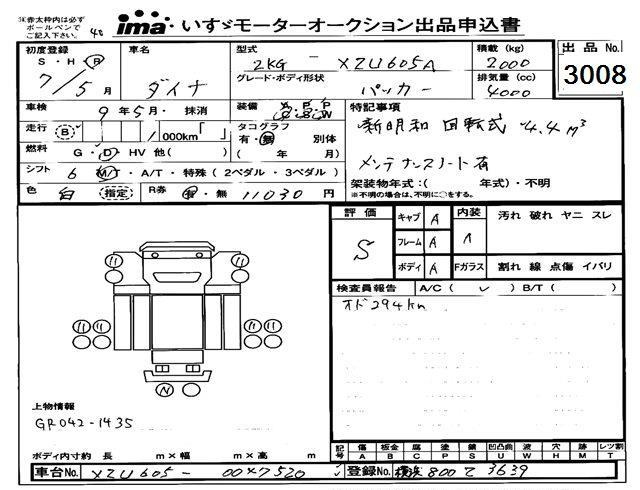 ※赤太枠内は必ず
ボールペンで
ご記入下さい。
ima いすゞモーターオークション出品申込書
初度登録 S・H・R 7/5月
車名 ダイナ
型式 2KG - XZU605A
積載 (kg) 2000
出品 No. 3008
グレード・ボディ形状 パッカー
排気量 (cc) 4000
車検 9年5月・抹消
装備 A・P・P C・S・W
特記事項
走行 B 1 000km「 」
タコグラフ 有・無 別体 ( 年 月)
新明和 回転式 4.4m³
燃料 G・D・HV 他( )
メンテナンスノート有
シフト 6 M/T・A/T・特殊 (2ペダル・3ペダル)
架装物年式:( 年式)・不明
※不明の場合は、不明に○をする。
色 白 (指定) R券 有・無 11030 円
評価 S
キャブ A
フレーム A
ボディ A
内装
Fガラス
汚れ 破れ ヤニ スレ
割れ 線 点傷 イバリ
検査員報告 A/C( ✓ ) B/T( )
オド294km
N
上物情報
GR042-1435
ボディ内寸約 長 m×幅 m×高 m
記号 傷 A 板金 B 腐 C 塗 P 錆 S 凹凸曲 U 波 W 穴 H 跡 M レツ割 T
車台No. XZU605- 00*7520
登録No. 横浜 800 て 3639